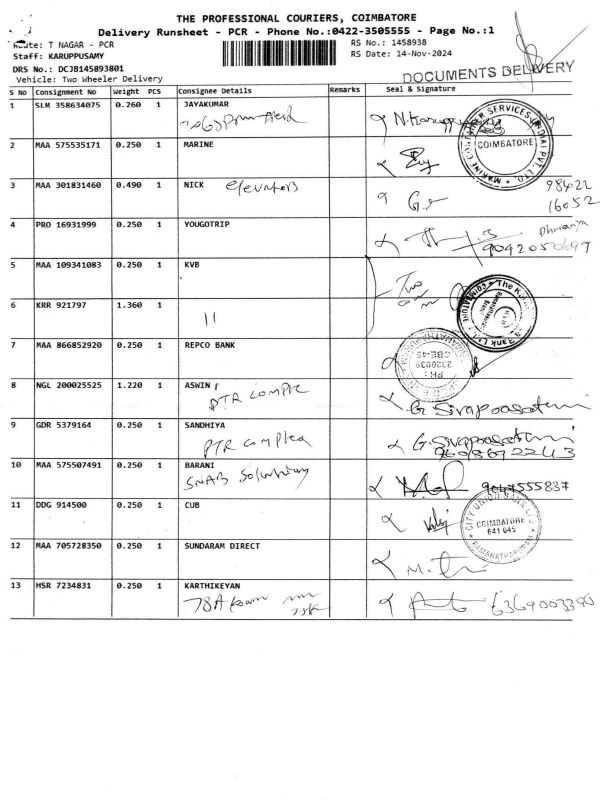 THE PROFESSIONAL COURIERS, COIMBATORE
Delivery Runsheet - PCR - Phone No.:0422-3505555 - Page No.:1
Route: T NAGAR - PCR RS No.: 1458938
Staff: KARUPPUSAMY RS Date: 14-Nov-2024
DRS No.: DCJB145893801
Vehicle: Two Wheeler Delivery
DOCUMENTS DELIVERY
S No Consignment No Weight PCS Consignee Details Remarks Seal & Signature
1 SLM 358634075 0.260 1 JAYAKUMAR
2 MAA 575535171 0.250 1 MARINE
COIMBATORE
3 MAA 301831460 0.490 1 NICK elevators 98422
16052
4 PRO 16931999 0.250 1 YOUGOTRIP
5 MAA 109341083 0.250 1 KVB
Two
6 KRR 921797 1.360 1
11
7 MAA 866852920 0.250 1 REPCO BANK
PH :
2320039
CBE-45
8 NGL 200025525 1.220 1 ASWIN
PTR COMPLE
G. Sivaprasatam
9 GDR 5379164 0.250 1 SANDHIYA
PTR complex
G. Sivaprasatam
9608692243
10 MAA 575507491 0.250 1 BARANI
SNAB
9047555837
11 DDG 914500 0.250 1 CUB
CITY UNION BANK LTD
COIMBATORE
641 045
RAMANATHAPURAM
12 MAA 705728350 0.250 1 SUNDARAM DIRECT
13 HSR 7234831 0.250 1 KARTHIKEYAN
78A
6369003390